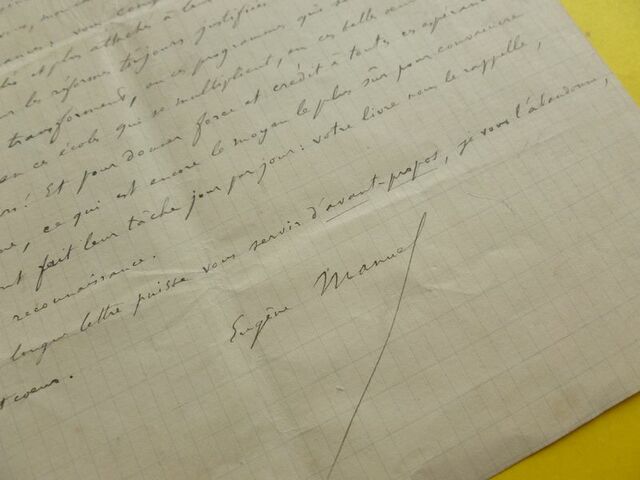 plus attachés à leur
les réformes toujours justifiées
transforment, en ces programmes que se
en ces écoles qui se multiplient, en ces belles
! Et pour donner force et crédit à toutes ces espérances
, ce qui est encore le moyen le plus sûr pour convaincre
fait leur tâche jour par jour : votre livre nous le rappelle,
reconnaissance.
longue lettre puisse vous servir d'avant-propos, je vous l'abandonne,
coeur.
Eugène Manuel